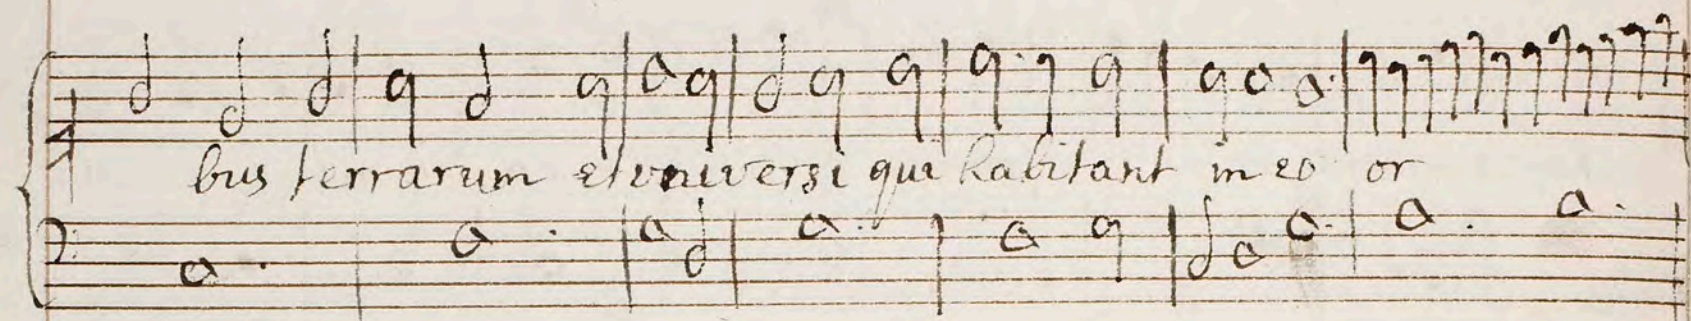 bus terrarum et universi qui habitant in eo or